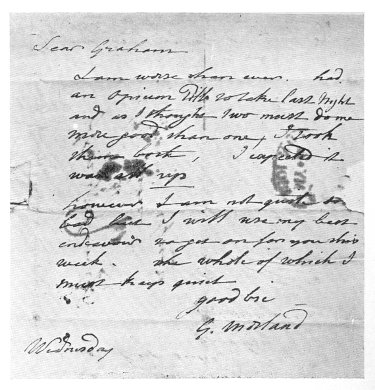 Dear Graham
I am worse than ever. had
an Opium Pill to take last Night
and as I thought two must do me
more good than one, I took
them both, I expected it
was all up
however I am not quite so
bad but I will use my best
endeavour to get on for you this
week. the whole of which I
must keep quiet
good bie
G. Morland
Wednesday